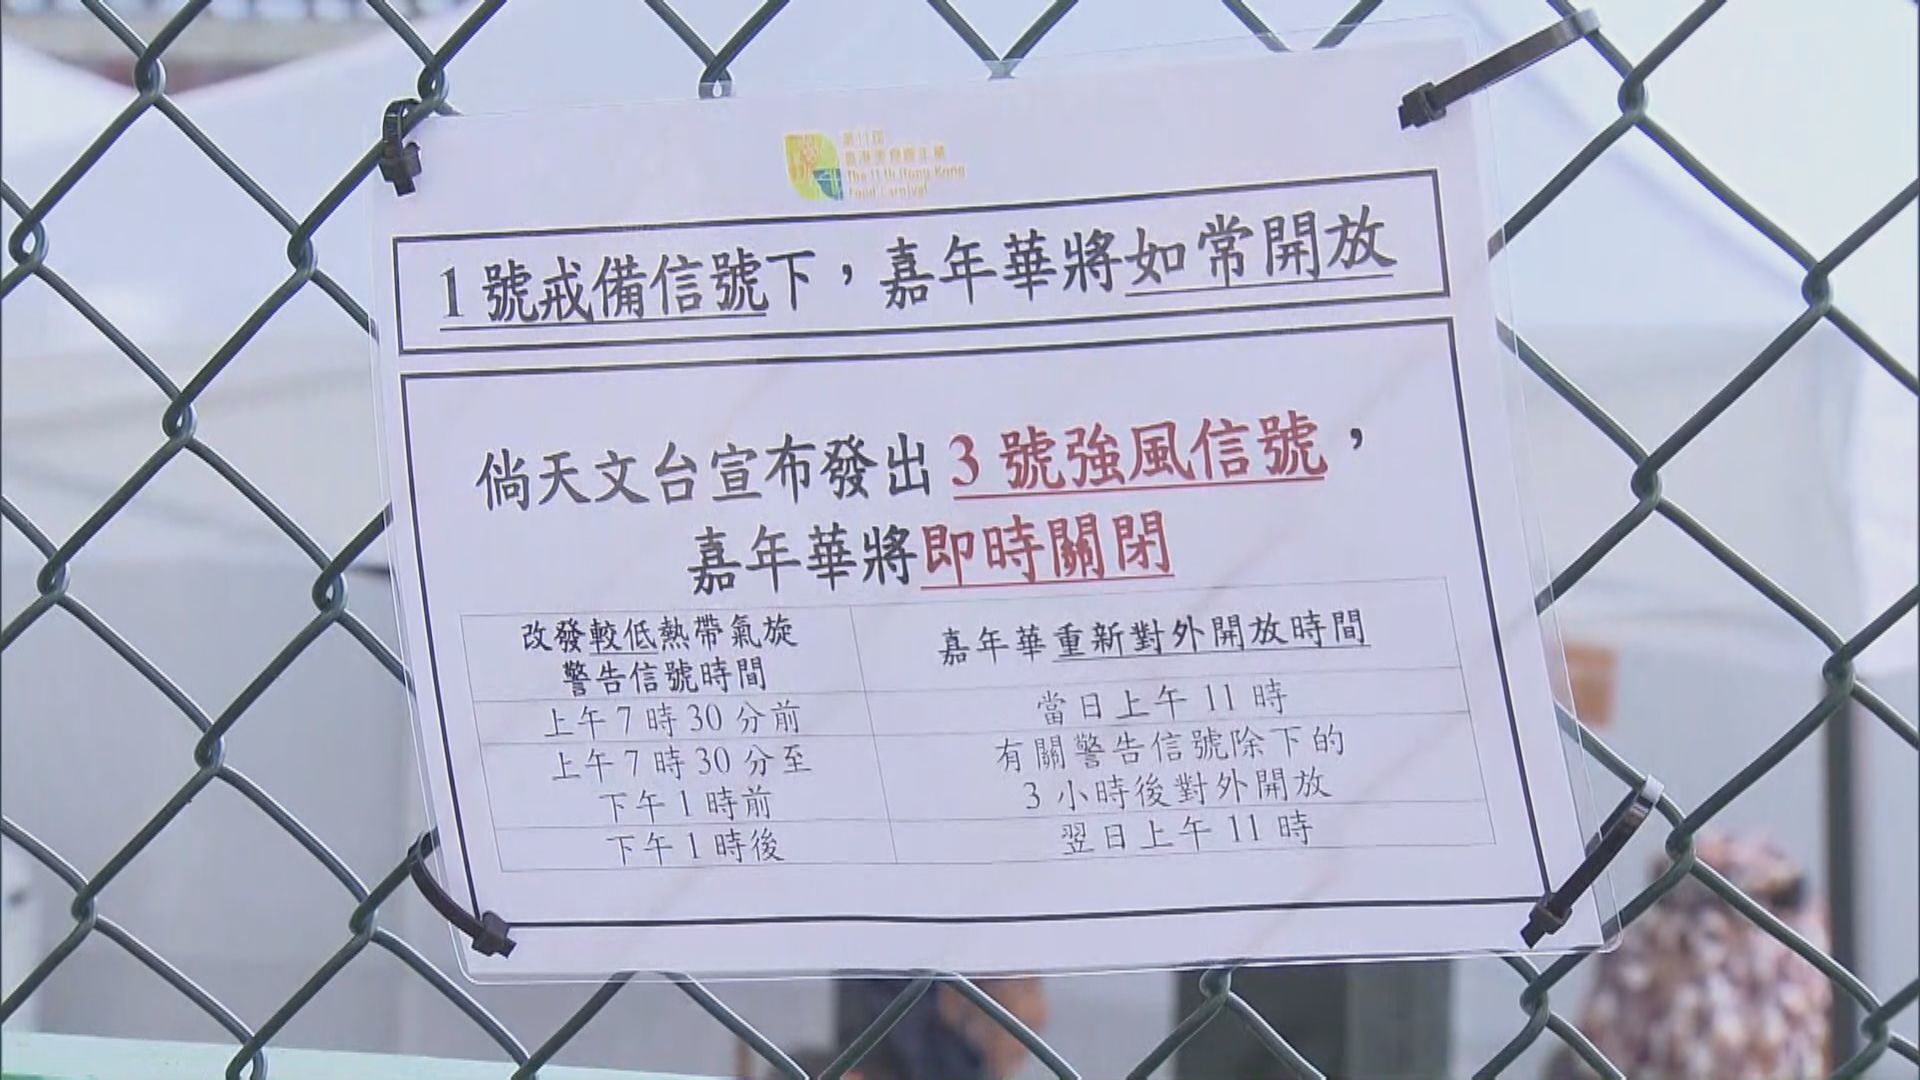 第11屆
香港美食嘉年華
The 11th Hong Kong
Food Carnival
1號戒備信號下，嘉年華將如常開放
倘天文台宣布發出3號強風信號，
嘉年華將即時關閉
改發較低熱帶氣旋
警告信號時間
嘉年華重新對外開放時間
上午7時30分前
當日上午11時
上午7時30分至
下午1時前
有關警告信號除下的
3小時後對外開放
下午1時後
翌日上午11時